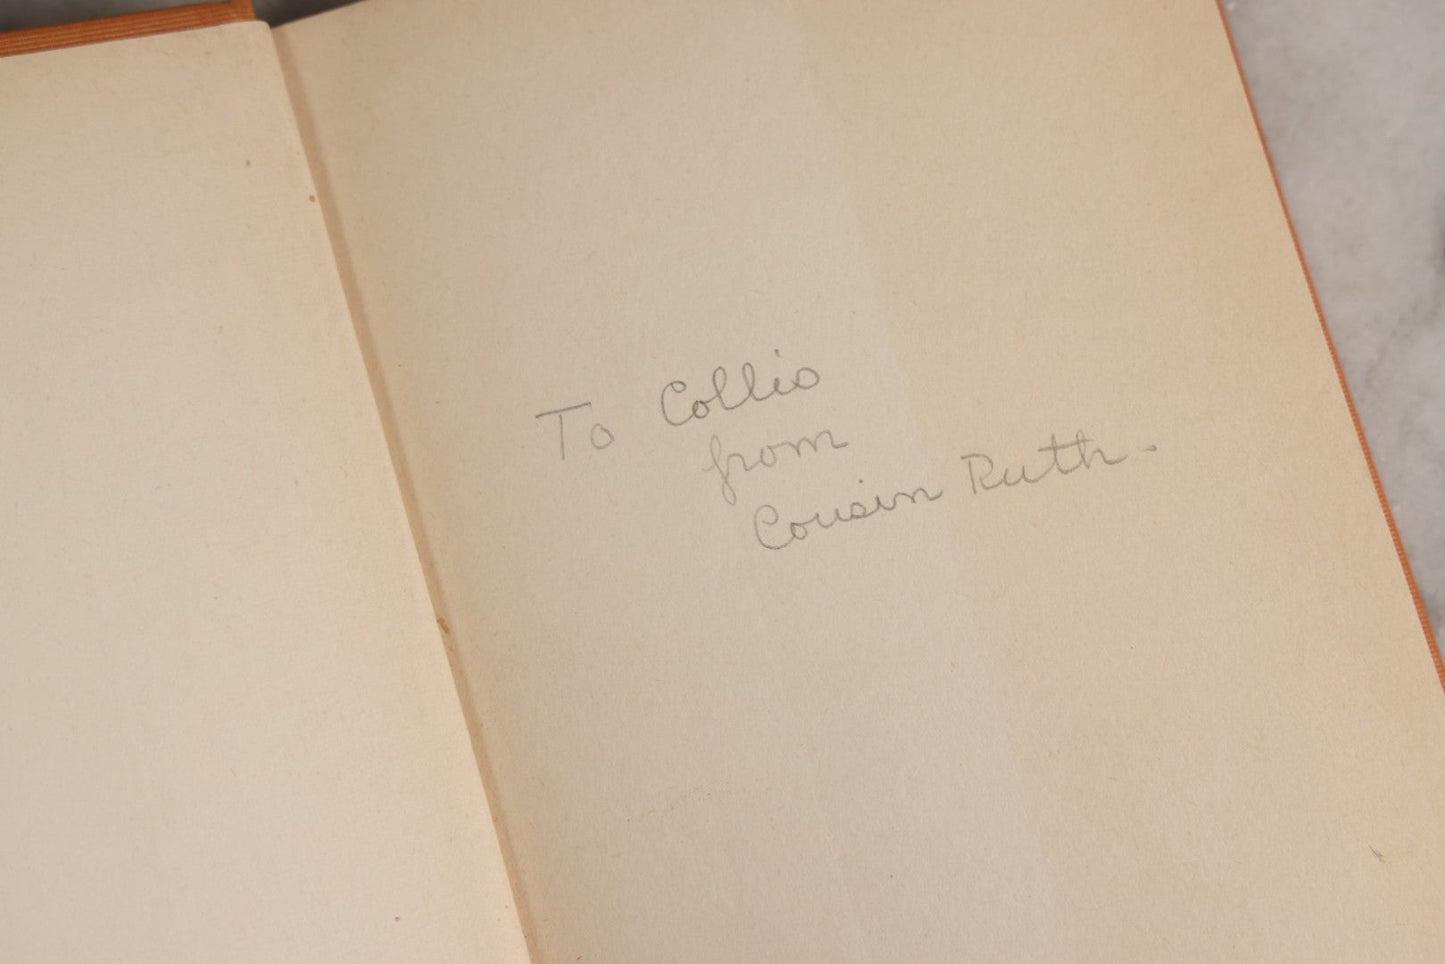 To Collio
from
Cousin Ruth.